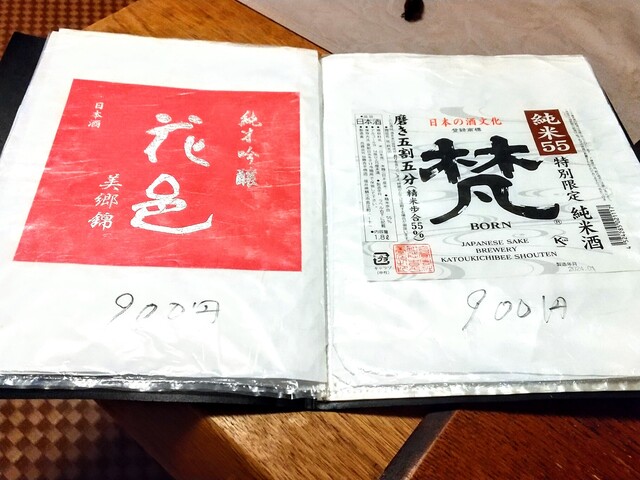 日本酒
純米吟醸
花邑
美郷錦
900円
日本酒
日本の酒文化
登録商標
純米55
磨き五割五分(精米歩合55%)
梵
特別限定純米酒
BORN
JAPANESE SAKE
BREWERY
KATOUKICHIBEE SHOUTEN
1.8L
900円